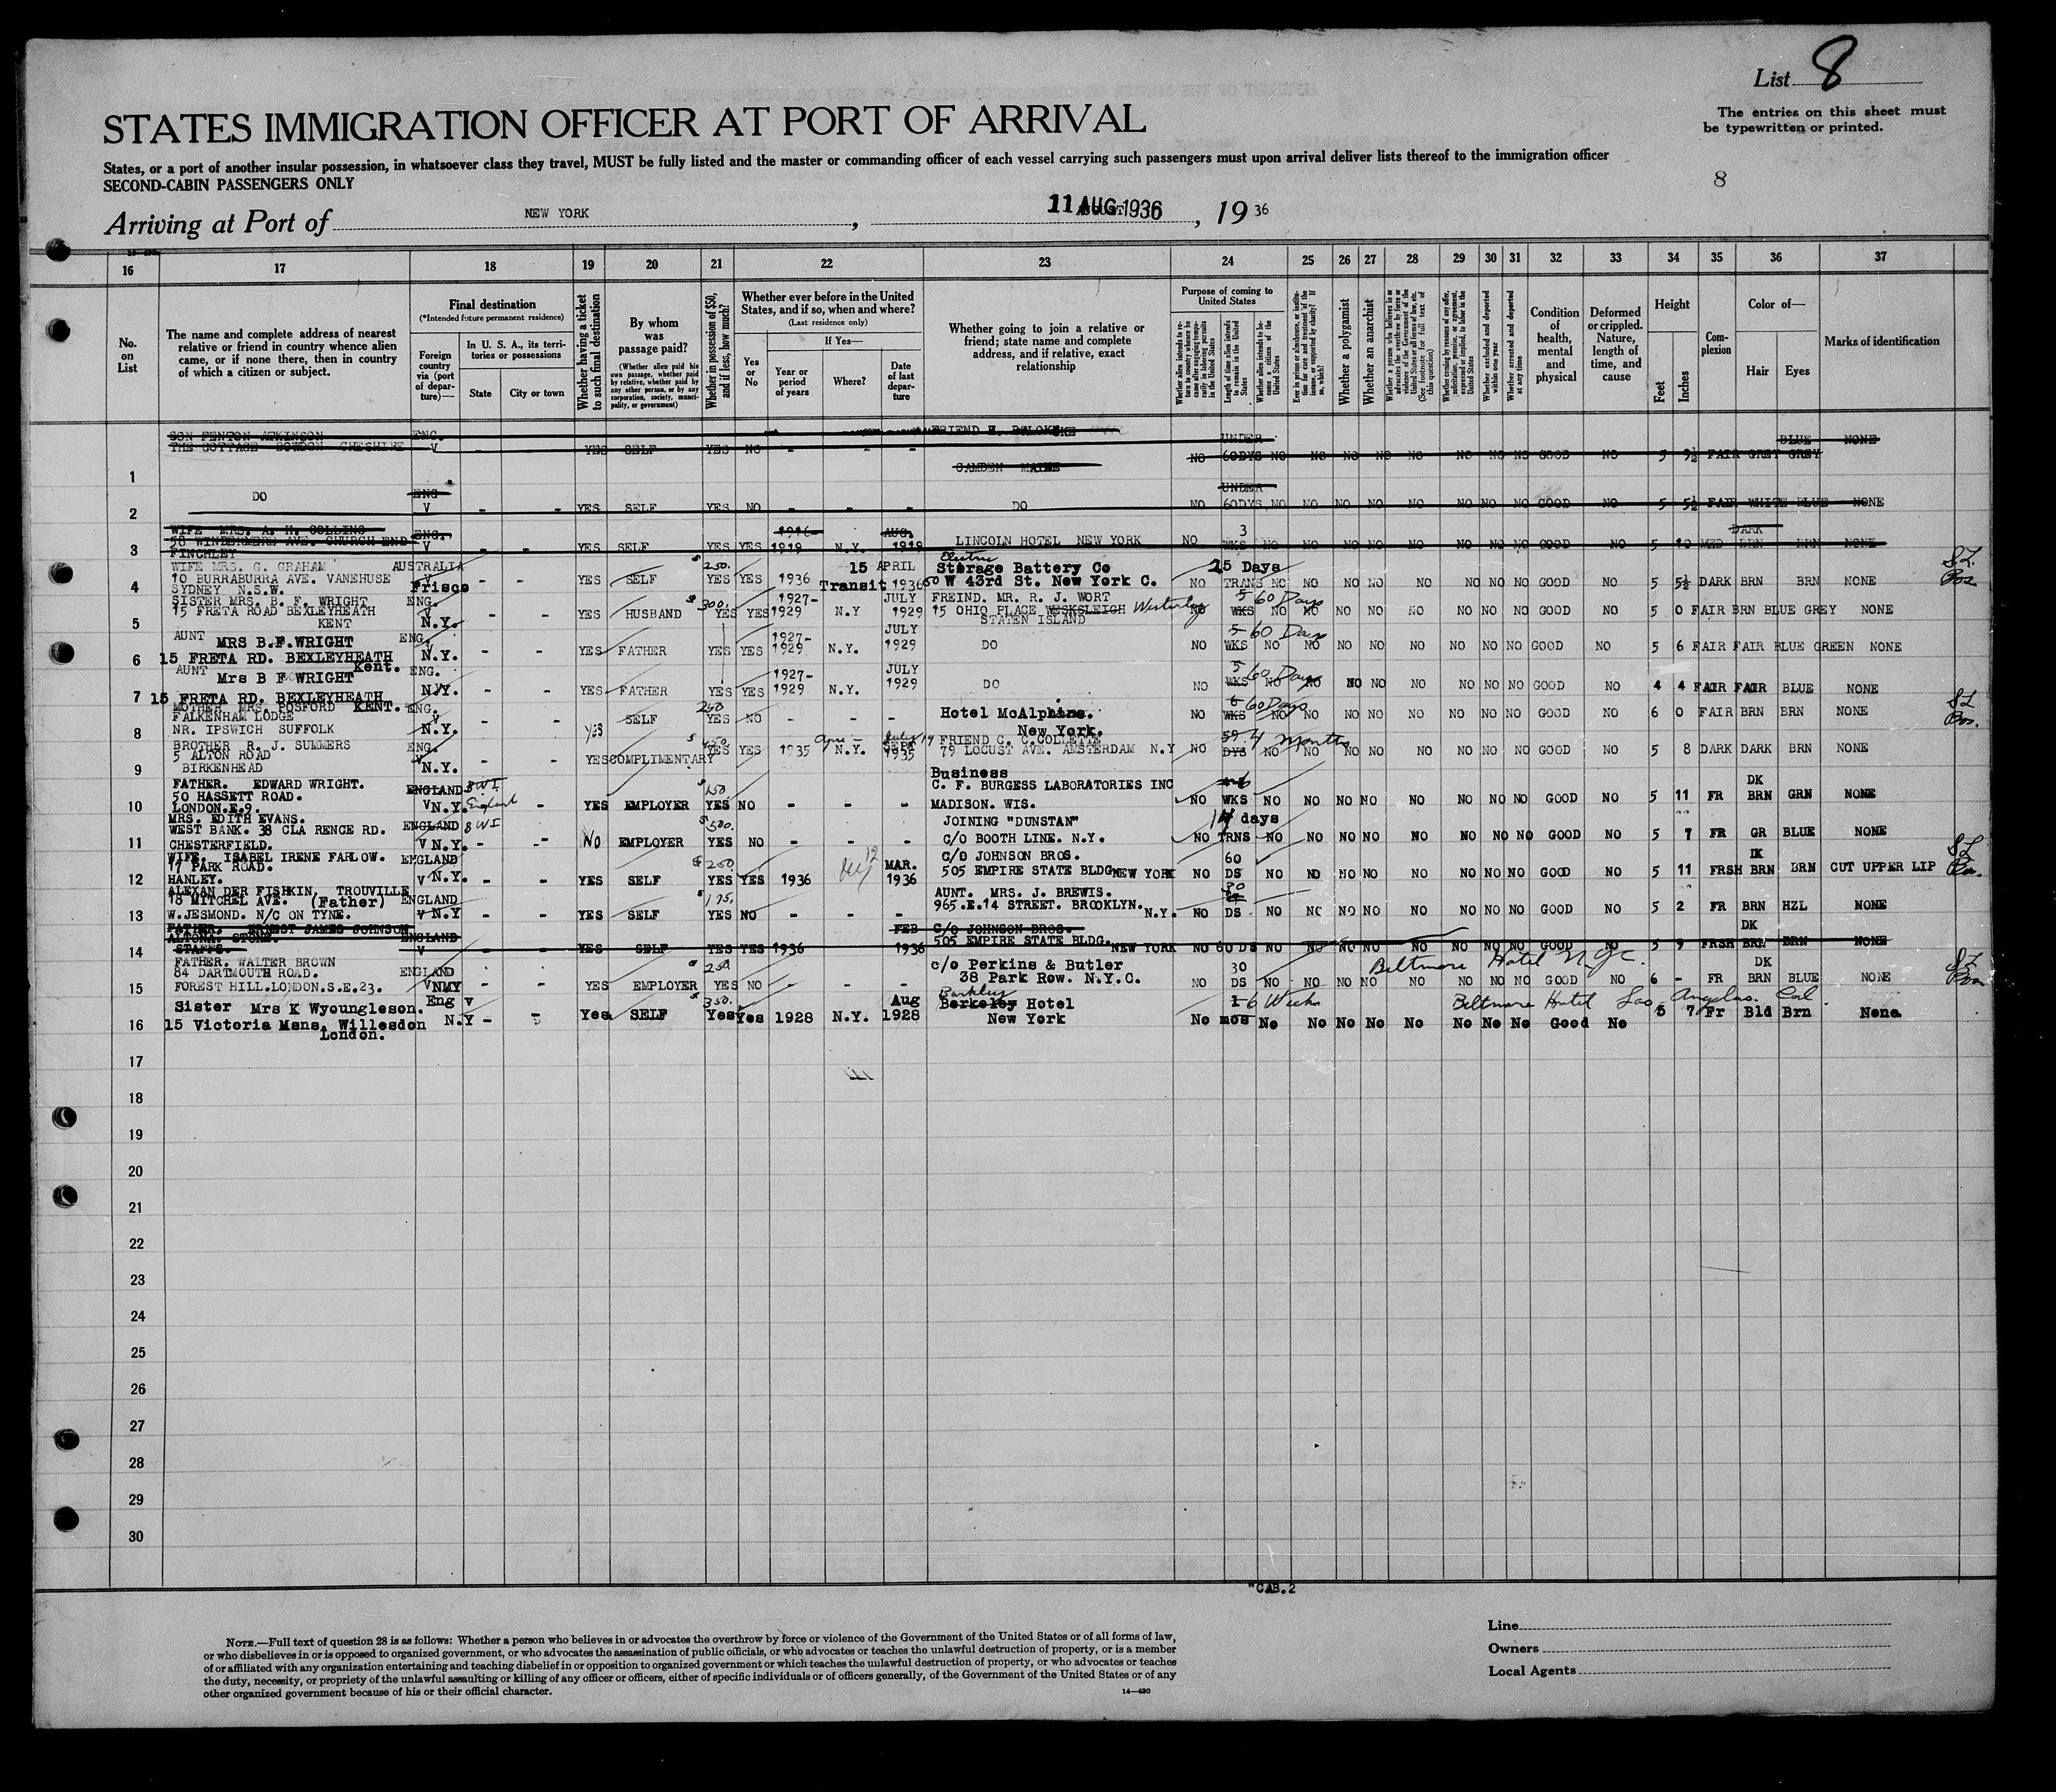 List 8
The entries on this sheet must
be typewritten or printed.
STATES IMMIGRATION OFFICER AT PORT OF ARRIVAL
States, or a port of another insular possession, in whatsoever class they travel, MUST be fully listed and the master or commanding officer of each vessel carrying such passengers must upon arrival deliver lists thereof to the immigration officer
SECOND-CABIN PASSENGERS ONLY
8
Arriving at Port of NEW YORK, 11 AUG 1936, 19 36
16 17 18 19 20 21 22 23 24 25 26 27 28 29 30 31 32 33 34 35 36 37
No. on List
The name and complete address of nearest relative or friend in country whence alien came, or if none there, then in country of which a citizen or subject.
Final destination
(*Intended future permanent residence)
Foreign country via (port of departure)—
In U. S. A., its territories or possessions
State
City or town
Whether having a ticket to such final destination
By whom was passage paid?
(Whether alien paid his own passage, whether paid by relative, whether paid by any other person, or by any corporation, society, municipality, or government)
Whether in possession of $50, and if less, how much?
Whether ever before in the United States, and if so, when and where?
(Last residence only)
Yes or No
If Yes—
Year or period of years
Where?
Date of last departure
Whether going to join a relative or friend; state name and complete address, and if relative, exact relationship
Purpose of coming to United States
Length of time alien intends to remain in the United States
Whether alien intends to become a citizen of the United States
Whether a polygamist
Whether an anarchist
(See footnote for full text of this question)
Whether excluded and deported within one year
Whether arrested and deported at any time
Condition of health, mental and physical
Deformed or crippled. Nature, length of time, and cause
Height
Feet
Inches
Complexion
Color of—
Hair
Eyes
Marks of identification
SON FENTON ATKINSON ENG. FRIEND UNDER BLUE NONE
THE COTTAGE BOWDON CHESHIRE V - - YES SELF YES NO - - - NO 60DYS NO NO NO NO NO NO NO NO GOOD NO 5 9½ FAIR GREY GREY
1 CAMDEN MAINE
DO ENG UNDER
2 V - - YES SELF YES NO - - - DO NO 60DYS NO NO NO NO NO NO NO NO GOOD NO 5 5½ FAIR WHITE BLUE NONE
WIFE MRS. A. H. COLLINS ENG. 1916- AUG. 3 DARK
58 WINDERMERE AVE. CHURCH END
3 FINCHLEY V - - YES SELF YES YES 1919 N.Y. 1919 LINCOLN HOTEL NEW YORK NO WKS NO NO NO NO NO NO NO NO GOOD NO 5 10 MED BRN BRN NONE
WIFE MRS. G. GRAHAM AUSTRALIA $ 250. 15 APRIL Electric Storage Battery Co 25 Days
4 10 BURRABURRA AVE. VANEHUSE V Frisco - - YES SELF YES YES 1936 Transit 1936 50 W 43rd St. New York C. NO TRANS NO NO NO NO NO NO NO NO GOOD NO 5 5½ DARK BRN BRN NONE
SYDNEY N.S.W.
SISTER MRS. B. F. WRIGHT ENG. $ 300. 1927- JULY FREIND. MR. R. J. WORT 5 60 Days
15 FRETA ROAD BEXLEYHEATH V - - YES HUSBAND YES YES 1929 N.Y 1929 15 OHIO PLACE Westerleigh NO WKS NO NO NO NO NO NO NO NO GOOD NO 5 0 FAIR BRN BLUE GREY NONE
5 KENT N.Y. STATEN ISLAND
AUNT ENG. JULY 5 60 Days
MRS B.F.WRIGHT 1927-
6 15 FRETA RD. BEXLEYHEATH N.Y. - - YES FATHER YES YES 1929 N.Y. 1929 DO NO WKS NO NO NO NO NO NO NO NO GOOD NO 5 6 FAIR FAIR BLUE GREEN NONE
Kent.
AUNT ENG. 1927- JULY 5 60 Days
Mrs B F WRIGHT N.Y. - - YES FATHER YES YES 1929 N.Y. 1929 DO NO WKS NO NO NO NO NO NO NO NO GOOD NO 4 4 FAIR FAIR BLUE NONE
7 15 FRETA RD. BEXLEYHEATH
KENT.
MOTHER MRS. POSFORD ENG. 250 6 60 Days
FALKENHAM LODGE V - - SELF YES NO - - - Hotel McAlphine. NO WKS NO NO NO NO NO NO NO NO GOOD NO 6 0 FAIR BRN BRN NONE
8 NR. IPSWICH SUFFOLK N.Y. yes New York.
BROTHER R. J. SUMMERS ENG. $ SEPT FRIEND C. C.COLLETTE 59 4 months
5 ALTON ROAD V - - YES COMPLIMENTARY YES YES 1935 N.Y. 1935 79 LOCUST AVE. AMSTERDAM N.Y NO DYS NO NO NO NO NO NO NO NO GOOD NO 5 8 DARK DARK BRN NONE
9 BIRKENHEAD N.Y.
Business
FATHER. EDWARD WRIGHT. ENGLAND BWI $ 150 C. F. BURGESS LABORATORIES INC 6 DK
50 HASSETT ROAD.
10 LONDON.E.9. V N.Y. England - YES EMPLOYER YES NO - - - MADISON. WIS. NO WKS NO NO NO NO NO NO NO NO GOOD NO 5 11 FR BRN GRN NONE
MRS. EDITH EVANS. $ 500. JOINING "DUNSTAN" 14 days
WEST BANK. 38 CLA RENCE RD. ENGLAND BWI
11 CHESTERFIELD. V N.Y. - - No EMPLOYER YES NO - - - C/O BOOTH LINE. N.Y. NO TRNS NO NO NO NO NO NO NO NO GOOD NO 5 7 FR GR BLUE NONE
WIFE. ISABEL IRENE FARLOW. ENGLAND $ 250 MAR. C/O JOHNSON BROS. 60 DK
17 PARK ROAD.
12 HANLEY. V N.Y. - - YES SELF YES YES 1936 1936 505 EMPIRE STATE BLDG. NEW YORK NO DS NO NO NO NO NO NO NO NO GOOD NO 5 11 FRSH BRN BRN CUT UPPER LIP
ALEXAN DER FISHKIN, TROUVILLE ENGLAND $ 175. AUNT. MRS. J. BREWIS. 30
18 MITCHEL AVE. (Father) 965.E.14 STREET. BROOKLYN.
13 W.JESMOND. N/C ON TYNE. V N.Y - - YES SELF YES NO - - - N.Y. NO DS NO NO NO NO NO NO NO NO GOOD NO 5 2 FR BRN HZL NONE
FATHER. ERNEST JAMES JOHNSON FEB C/O JOHNSON BROS. DK
ALTONA. STONE. ENGLAND 505 EMPIRE STATE BLDG.
14 STAFFS. V - - YES SELF YES YES 1936 1936 NEW YORK NO 60 DS NO NO NO NO NO NO NO NO GOOD NO 5 9 FRSH BRN BRN NONE
FATHER. WALTER BROWN $ 250 c/o Perkins & Butler 30 Biltmore Hotel N.Y.C. DK
84 DARTMOUTH ROAD. ENGLAND 38 Park Row. N.Y.C.
15 FOREST HILL.LONDON.S.E.23. V NMY - - YES EMPLOYER YES NO - - - NO DS NO NO NO NO NO NO NO NO GOOD NO 6 - FR BRN BLUE NONE
Sister Mrs K Wyoungleson. Eng v $ 350. Aug Barkley Berkeley Hotel 1 6 Weeks Biltmore Hotel Los Angelas. Cal.
16 15 Victoria Mans. Willesdon N.Y - - Yes SELF Yes Yes 1928 N.Y. 1928 New York No mos No No No No No No No No Good No 5 7 Fr Bld Brn None
London.
17
18
19
20
21
22
23
24
25
26
27
28
29
30
"CAB.2
Line
Owners
Local Agents
NOTE.—Full text of question 28 is as follows: Whether a person who believes in or advocates the overthrow by force or violence of the Government of the United States or of all forms of law,
or who disbelieves in or is opposed to organized government, or who advocates the assassination of public officials, or who advocates or teaches the unlawful destruction of property, or is a member
of or affiliated with any organization entertaining and teaching disbelief in or opposition to organized government or which teaches the unlawful destruction of property, or who advocates or teaches
the duty, necessity, or propriety of the unlawful assaulting or killing of any officer or officers, either of specific individuals or of officers generally, of the Government of the United States or of any
other organized government because of his or their official character.
14—430